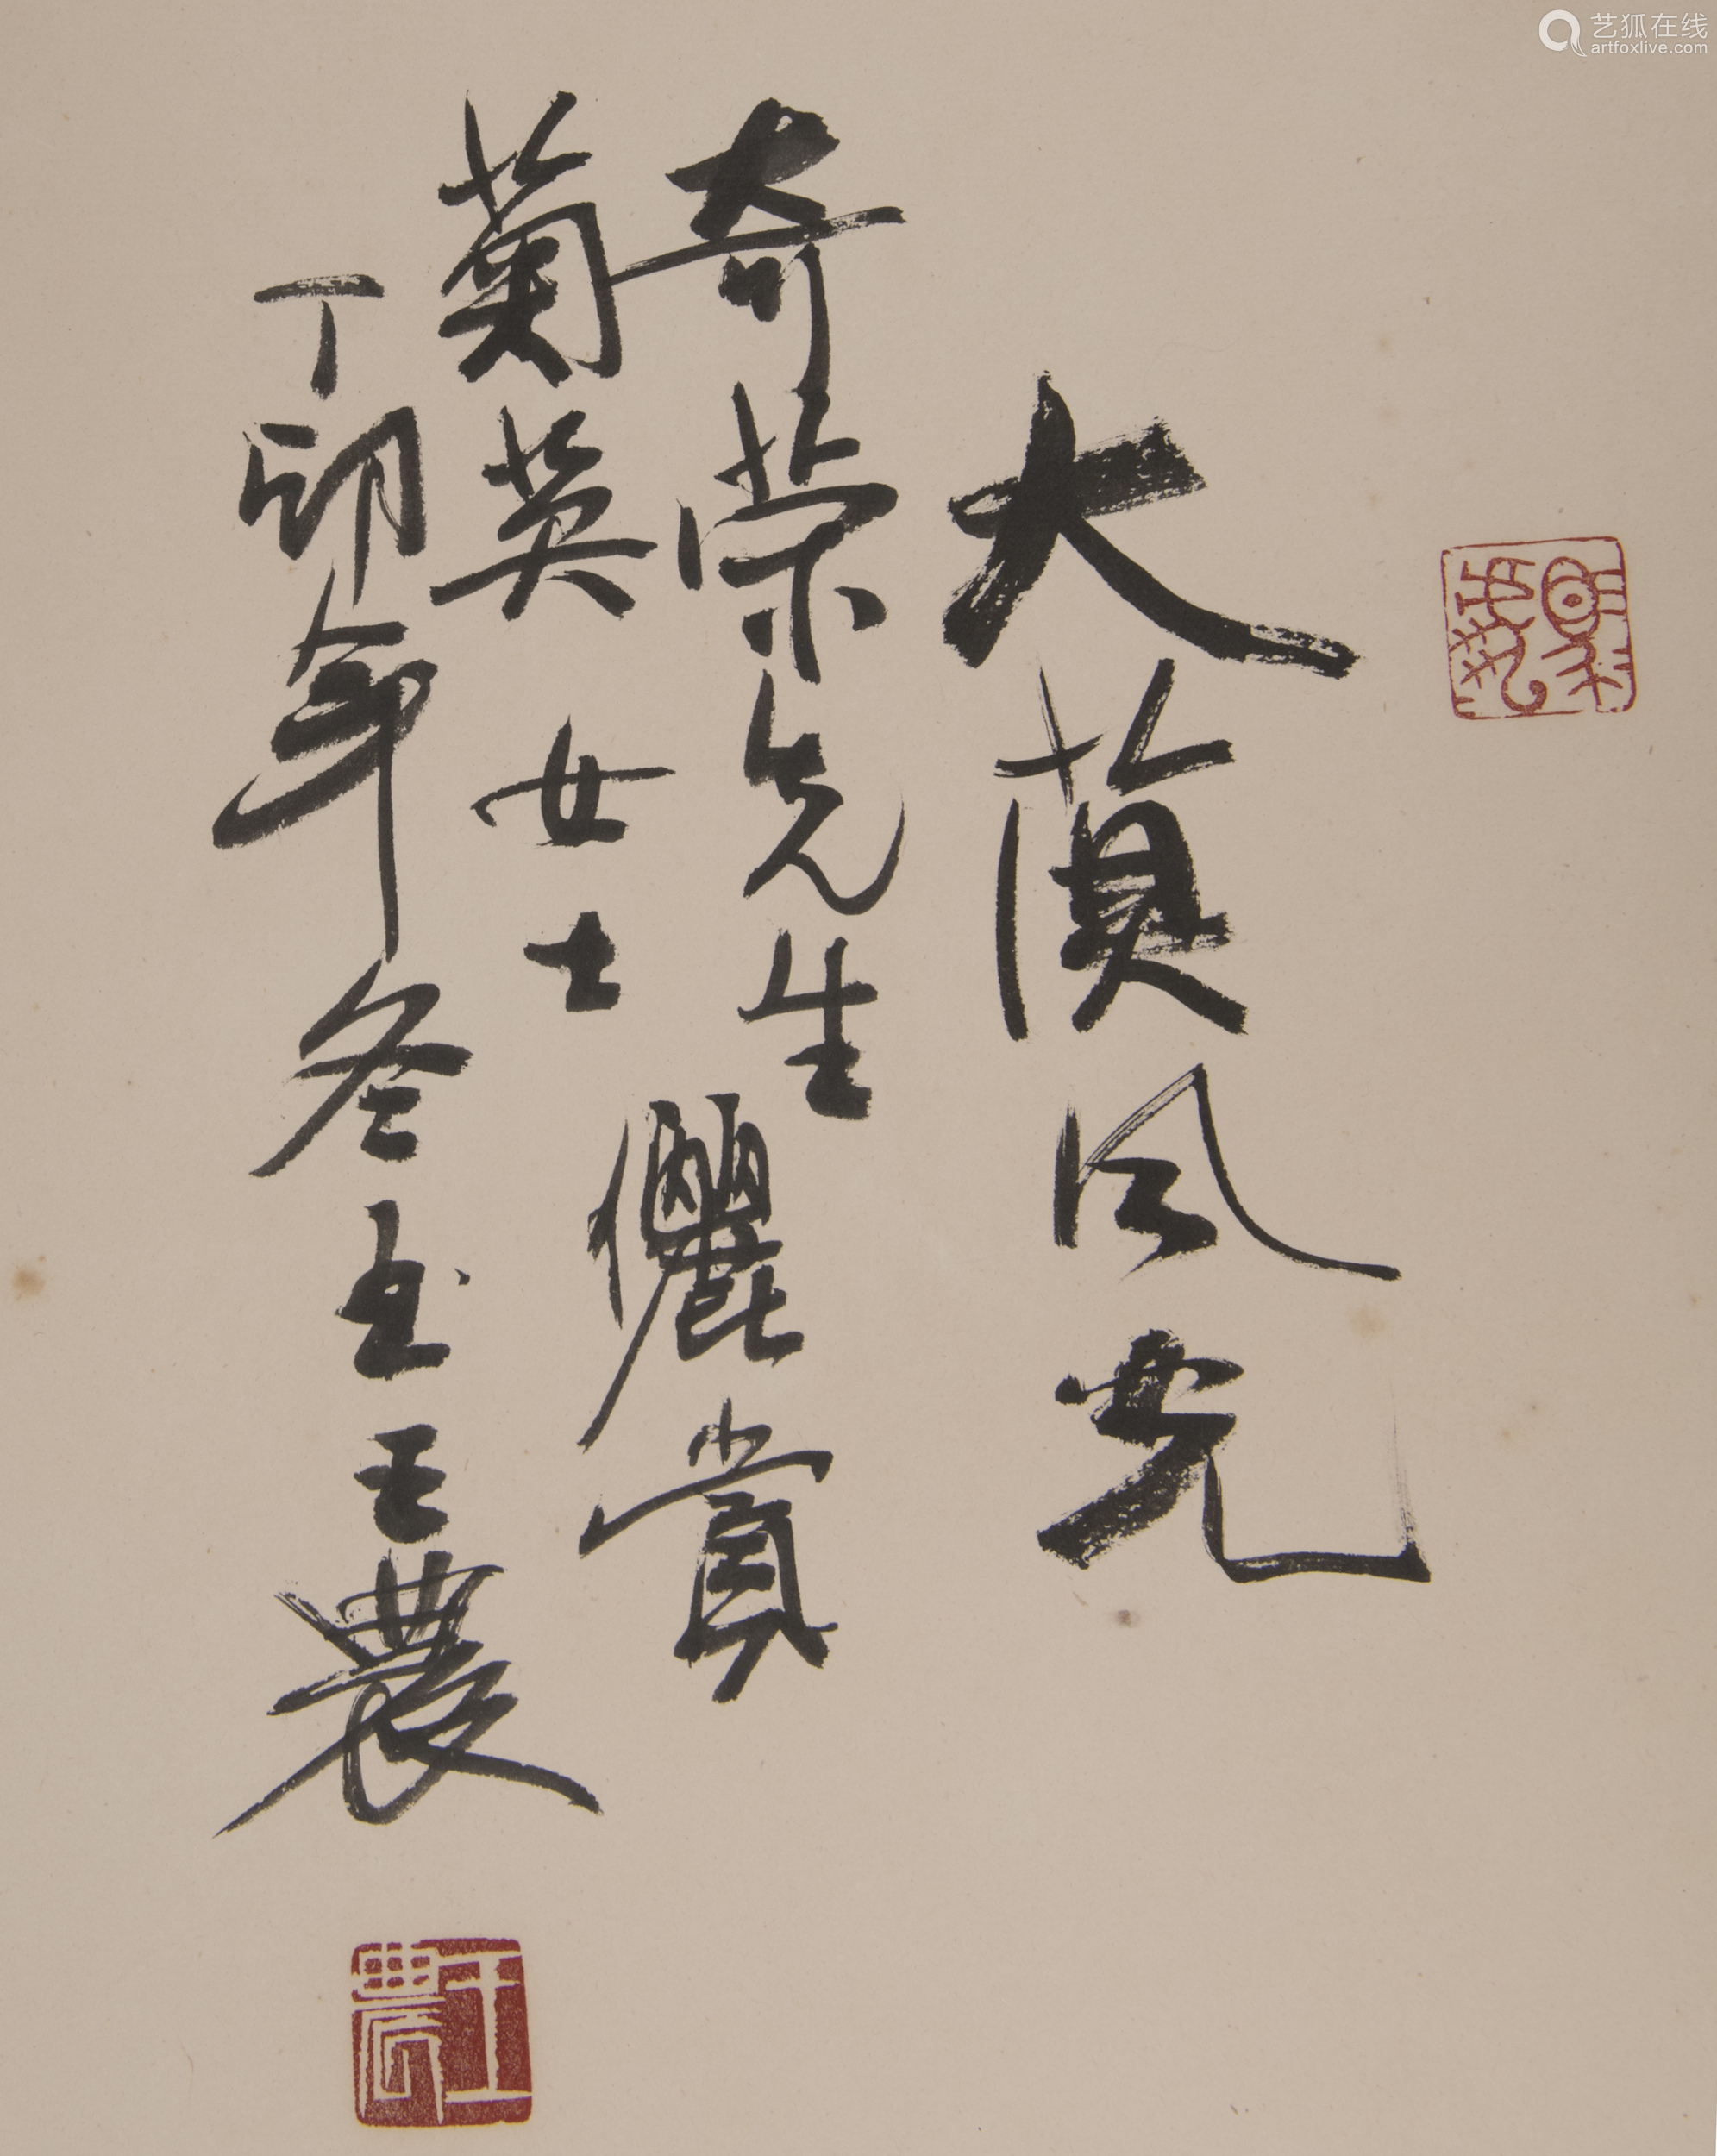 艺狐在线
artfoxlive.com
大漠风光
奇荣先生
菊英女士
儷賞
丁卯年冬至王農
王農